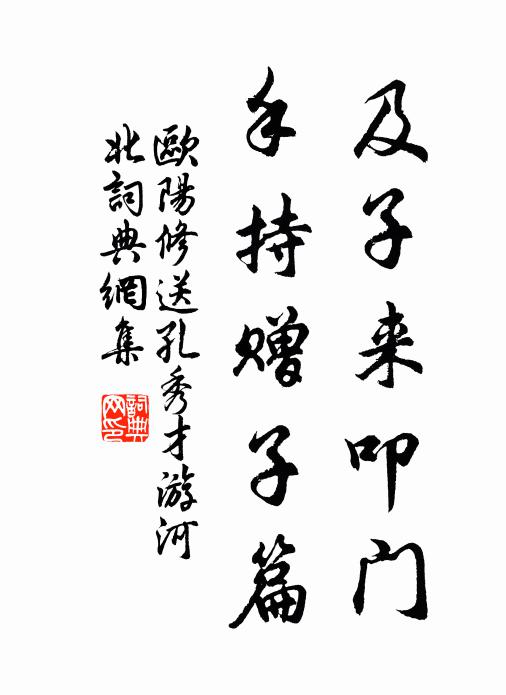 及子来叩门
手持赠子篇
歐陽修送孔秀才游河
北詞典網集
詞典网印